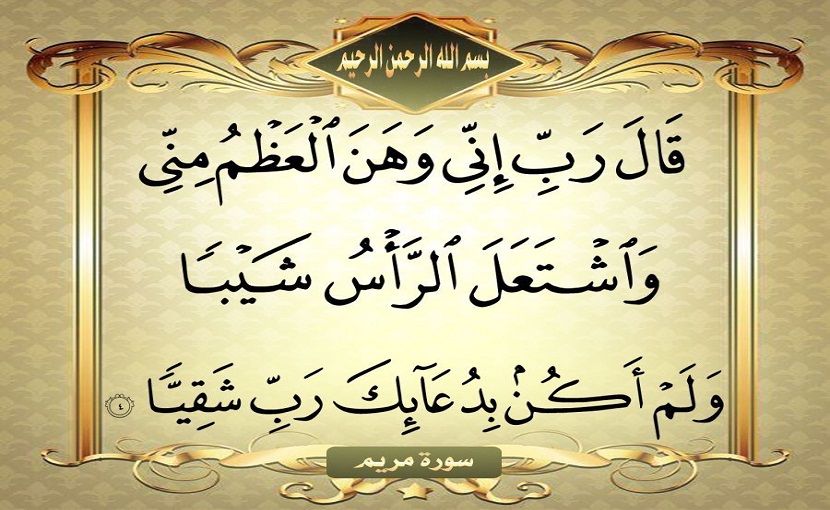 بسم الله الرحمن الرحيم
قَالَ رَبِّ إِنِّي وَهَنَ ٱلْعَظْمُ مِنِّي
وَٱشْتَعَلَ ٱلرَّأْسُ شَيْبًا
وَلَمْ أَكُنۢ بِدُعَآئِكَ رَبِّ شَقِيًّا ٤
سورة مريم